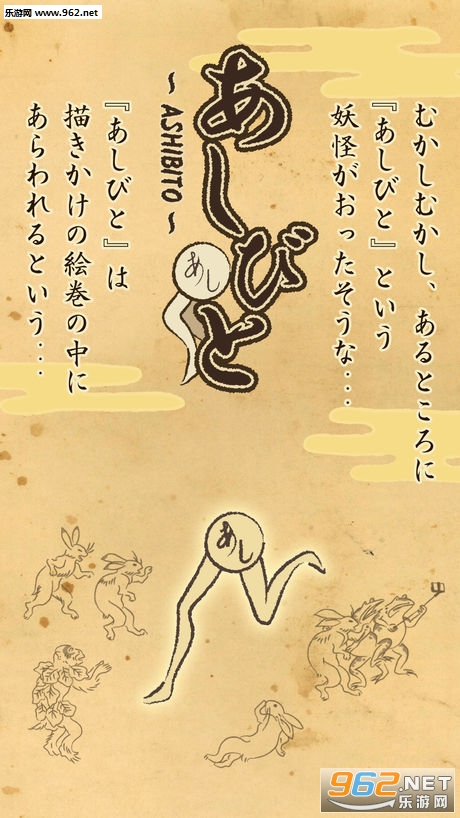 乐游网 www.962.net
むかしむかし、あるところに
『あしびと』という
妖怪がおったそうな…
あしびと
~ ASHIBITO ~
あし
『あしびと』は
描きかけの絵巻の中に
あらわれるという…
あし
962.NET
乐游网